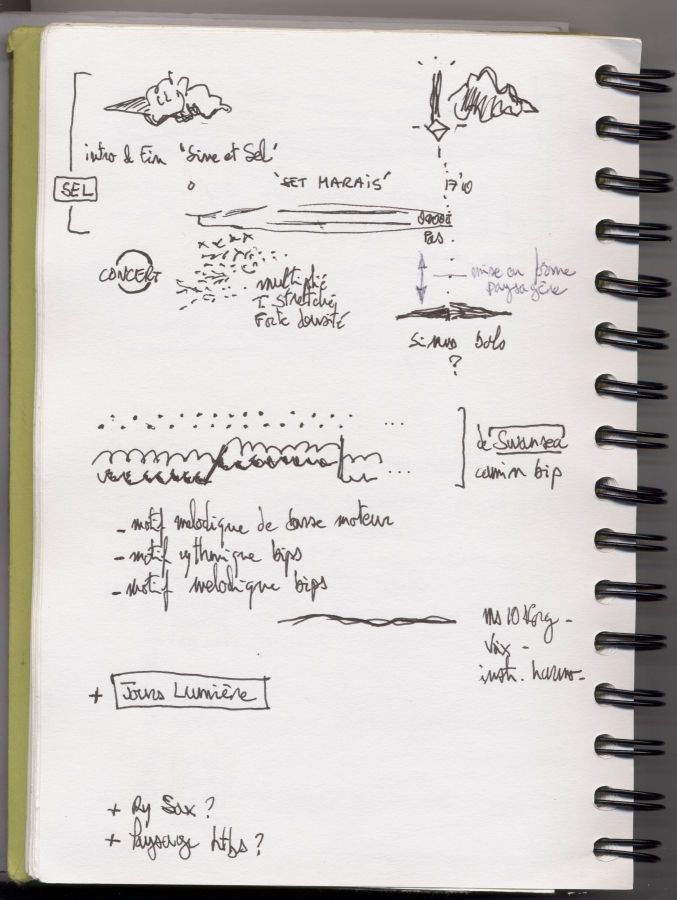 intro & Fin 'Sine et Sel'
SEL
0 'SET MARAIS' 17'10
Pas
CONCERT
multiplié
T stretché,
Forte densité
mise en forme
paysagère
Sinus bols
?
de Swansea
camin bip
- motif melodique de basse moteur
- motif rythmique bips
- motif melodique bips
MS 10 Korg -
Voix -
instr. harmo-
+ Jours Lumière
+ Ry Sax ?
+ Paysage htbs ?